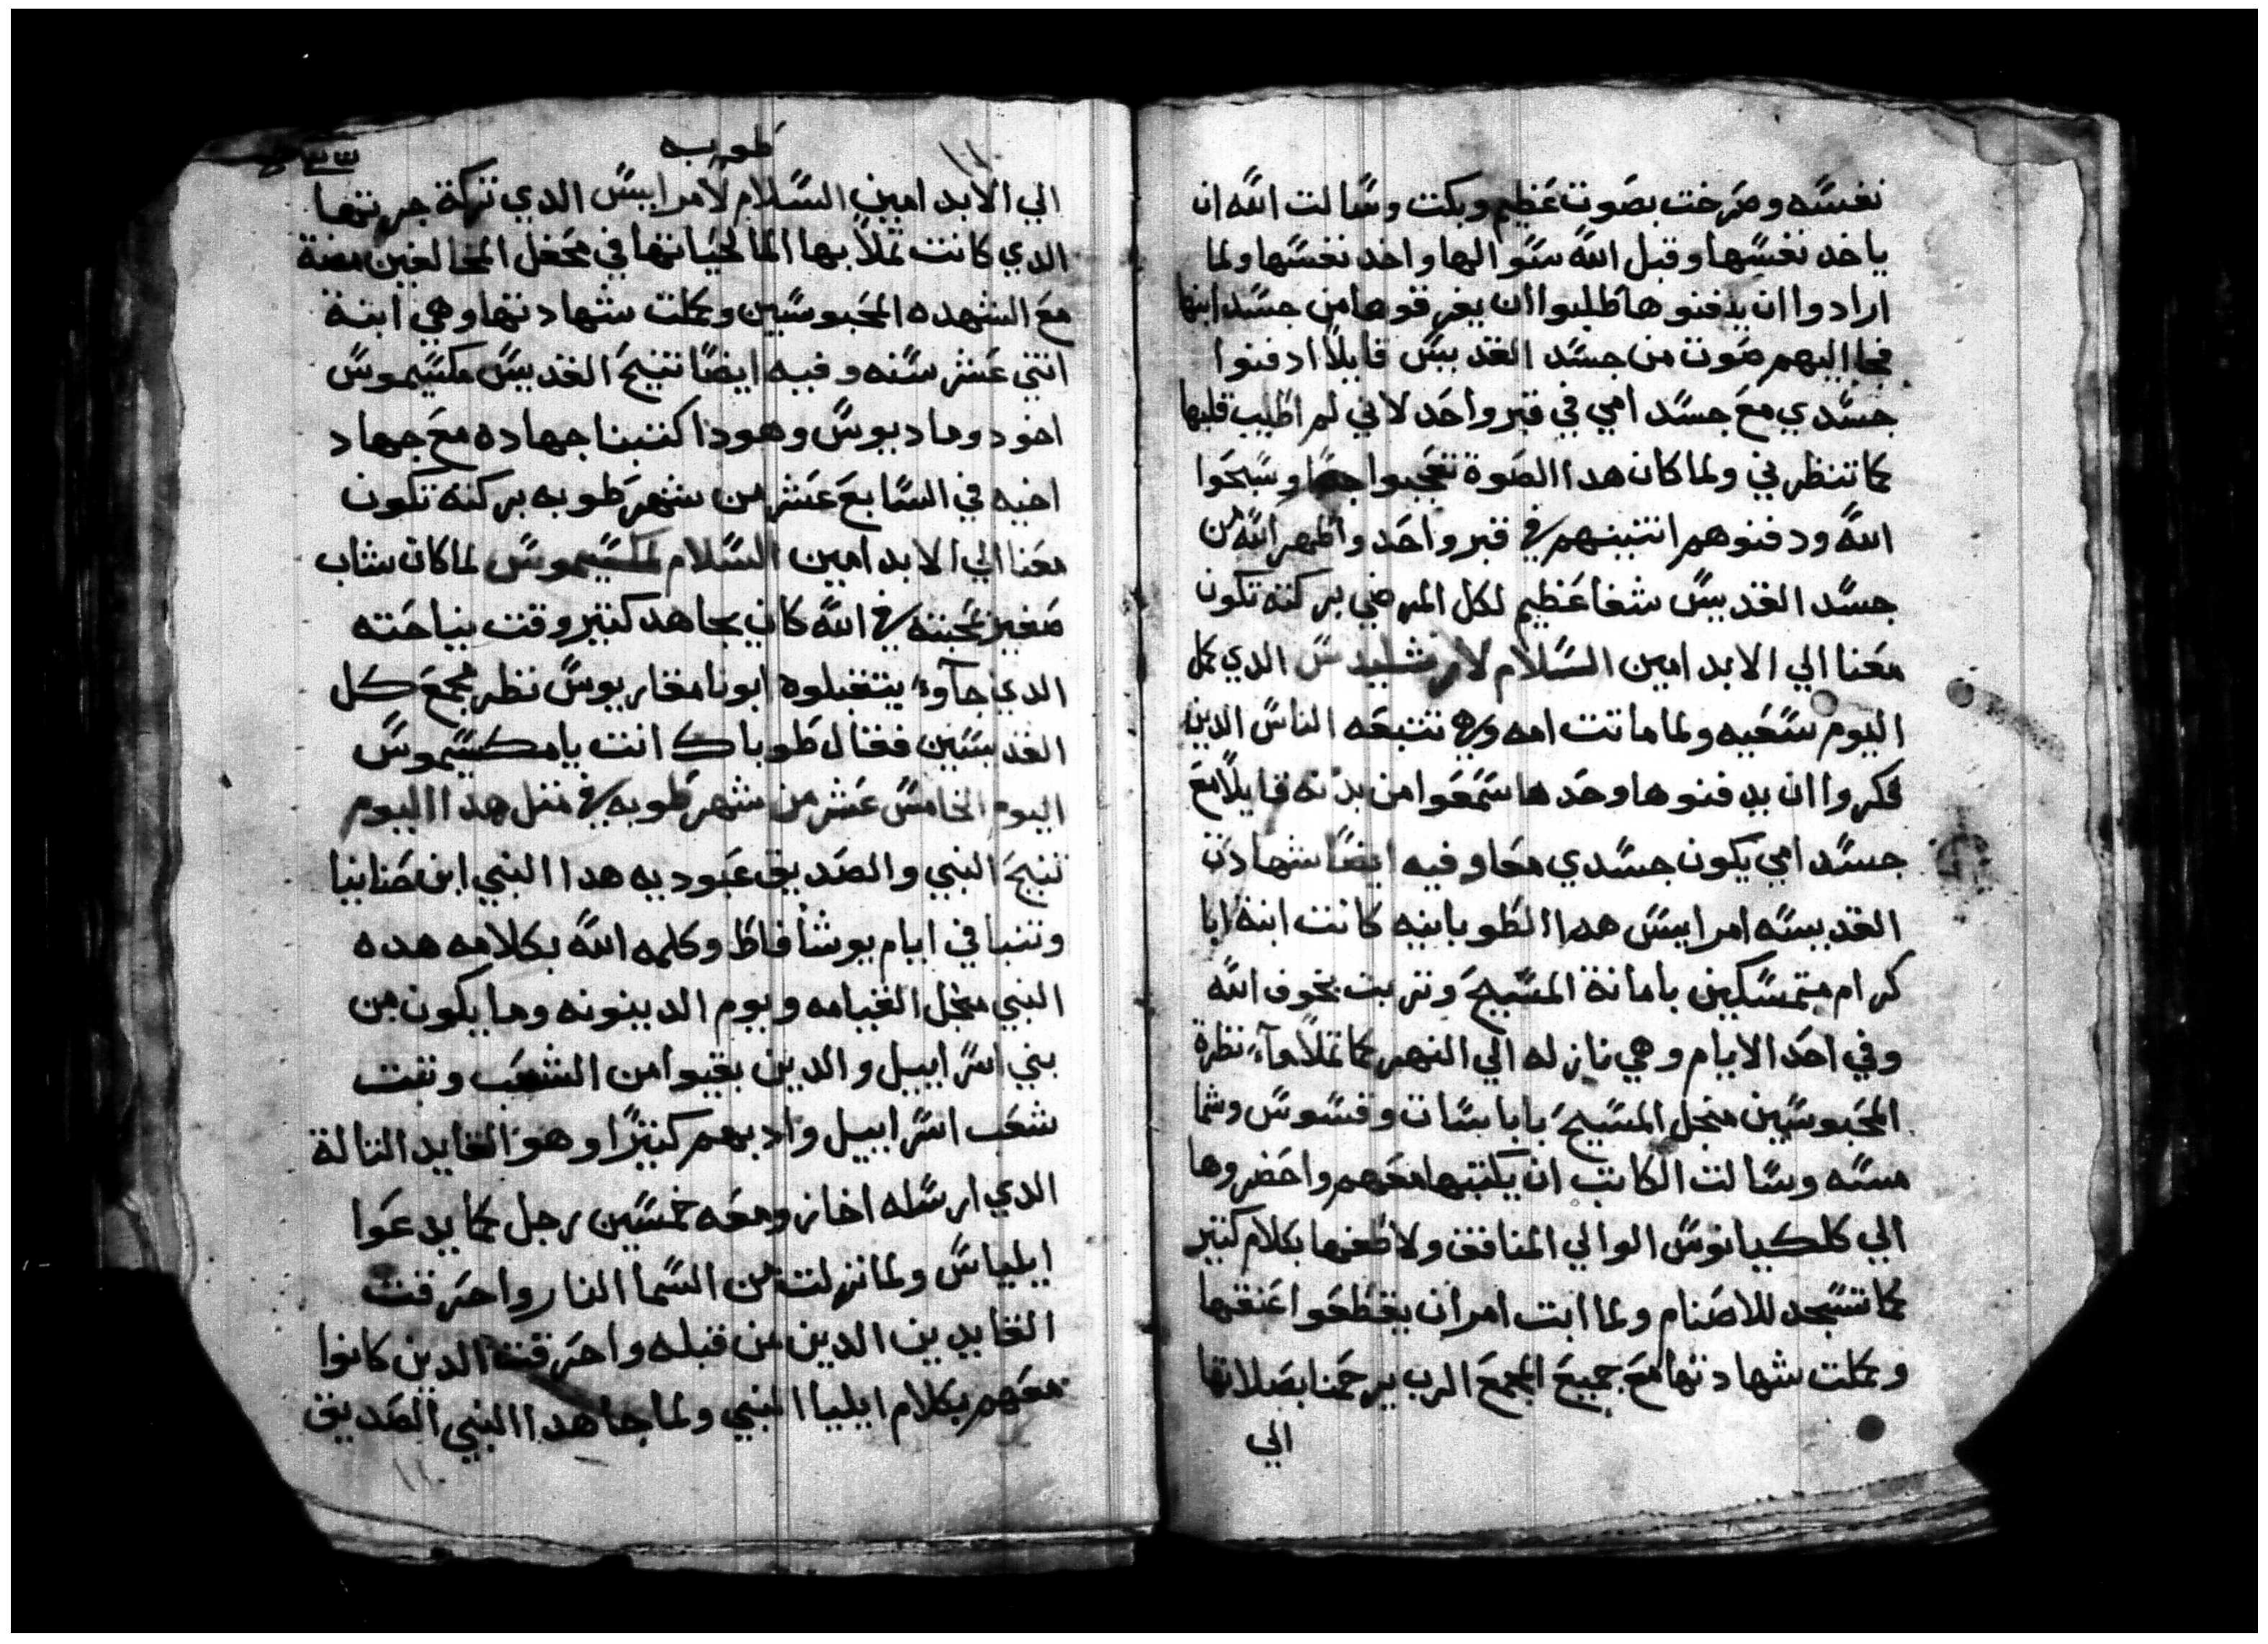 نفسه وصرخت بصوت عظيم وبكت وسالت الله ان
ياخد نفسها وقبل الله سوالها واخد نفسها ولما
ارادوا ان يدفنوها طلبوا ان يفرقوها من جسد ابنها
فجا اليهم صوت من جسد القديس قايلاً ادفنوا
جسدي مع جسد امي في قبر واحد لاني لم اطيب قلبها
كما تنظرني ولما كان هدا الصوة تعجبوا جدًا وسبحوا
الله ودفنوهم اتنينهم في قبر واحد واظهر الله من
جسد القديس شفا عظيم لكل المرضي بركته تكون
معنا الي الابد امين السلام لارشليدس الدي كمل
اليوم سعيه ولما ماتت امه وهي تتبعه الناس الدين
فكروا ان يدفنوها وحدها سمعوا من بدنه قايلاً مع
جسد امي يكون جسدي معا وفيه ايضًا شهادة
القديسه امراييس هدا الطوبانيه كانت ابنة ابا
كرام متمسكين بامانة المسيح وتربت بخوف الله
وفي احد الايام وهي نازله الي النهر كما تملا مآء نظرة
المحبوسين منجل المسيح باباسات وقسوس وشما
مسه وسالت الكاتب ان يكتبها معهم واحضروها
الي كلكيانوس الوالي المنافق ولاطفها بكلام كتير
كما تسجد للاصنام ولما ابت امر ان يقطعوا عنقها
وكملت شهادتها مع جميع المجمع الرب يرحمنا بصلاتها
الي
طوبه
الي الابد امين السلام لامراييس الدي تركة جرتها
الدي كانت تملا بها الما لحياتها في محفل المخالفين مضة
مع الشهده المحبوسين وكملت شهادتها وهي ابنة
اتني عشر سنه وفيه ايضًا تنيح القديس مكسيموس
اخو دوماديوس وهودا كتبنا جهاده مع جهاد
اخيه في السابع عشر من شهر طوبه بركته تكون
معنا الي الابد امين السلام لمكسيموس لما كان شاب
صغير لمحبته في الله كان يجاهد كتير وقت نياحته
الدي جآوء يتقبلوه ابونا مقاريوس نظر مجمع كل
القديسين فقال طوباك انت يا مكسيموس
اليوم الخامس عشر من شهر طوبه في متل هدا اليوم
تنيح النبي والصديق عبوديه هدا النبي ابن صنانيا
وتنبا في ايام يوشافاظ وكلمه الله بكلامه هده
النبي منجل القيامه ويوم الدينونه وما يكون من
بني اسراييل والدين بقيوا من الشعب ونقت
شعب اسراييل وادبهم كتيرًا وهو القايد التالة
الدي ارسله اخاز ومعه خمسين رجل كما يدعوا
ايلياس ولما نزلت من السما النار واحرقت
القايدين الدين من قبله واحرقت الدين كانوا
معهم بكلام ايليا النبي ولما جا هدا النبي الصديق